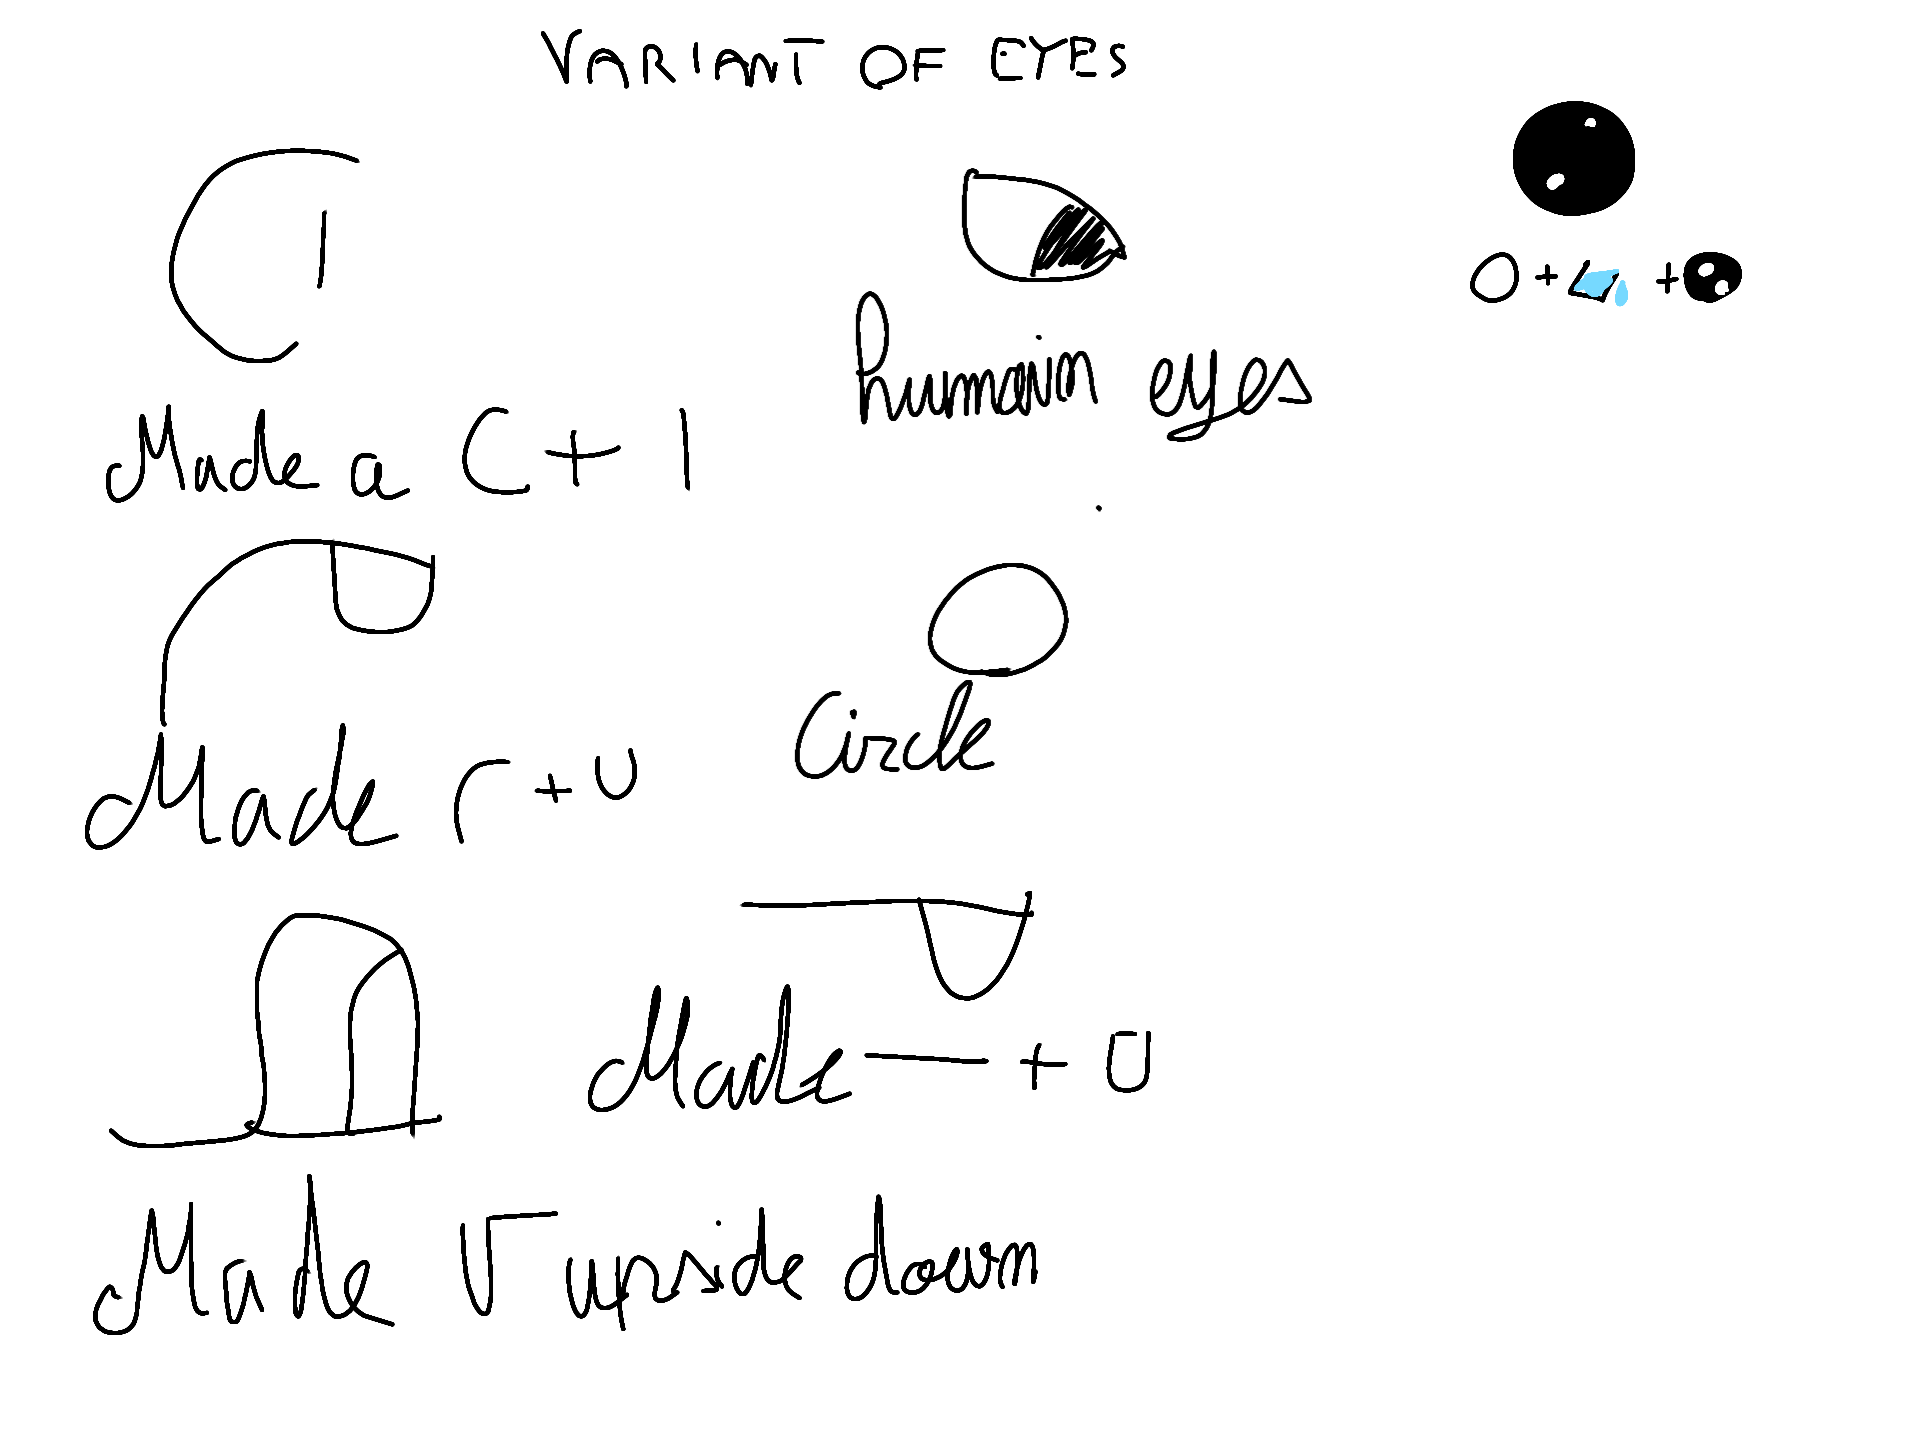 VARIANT OF EYES
humain eyes
Made a C + I
Circle
Made r + U
Made — + U
Made √ upside down